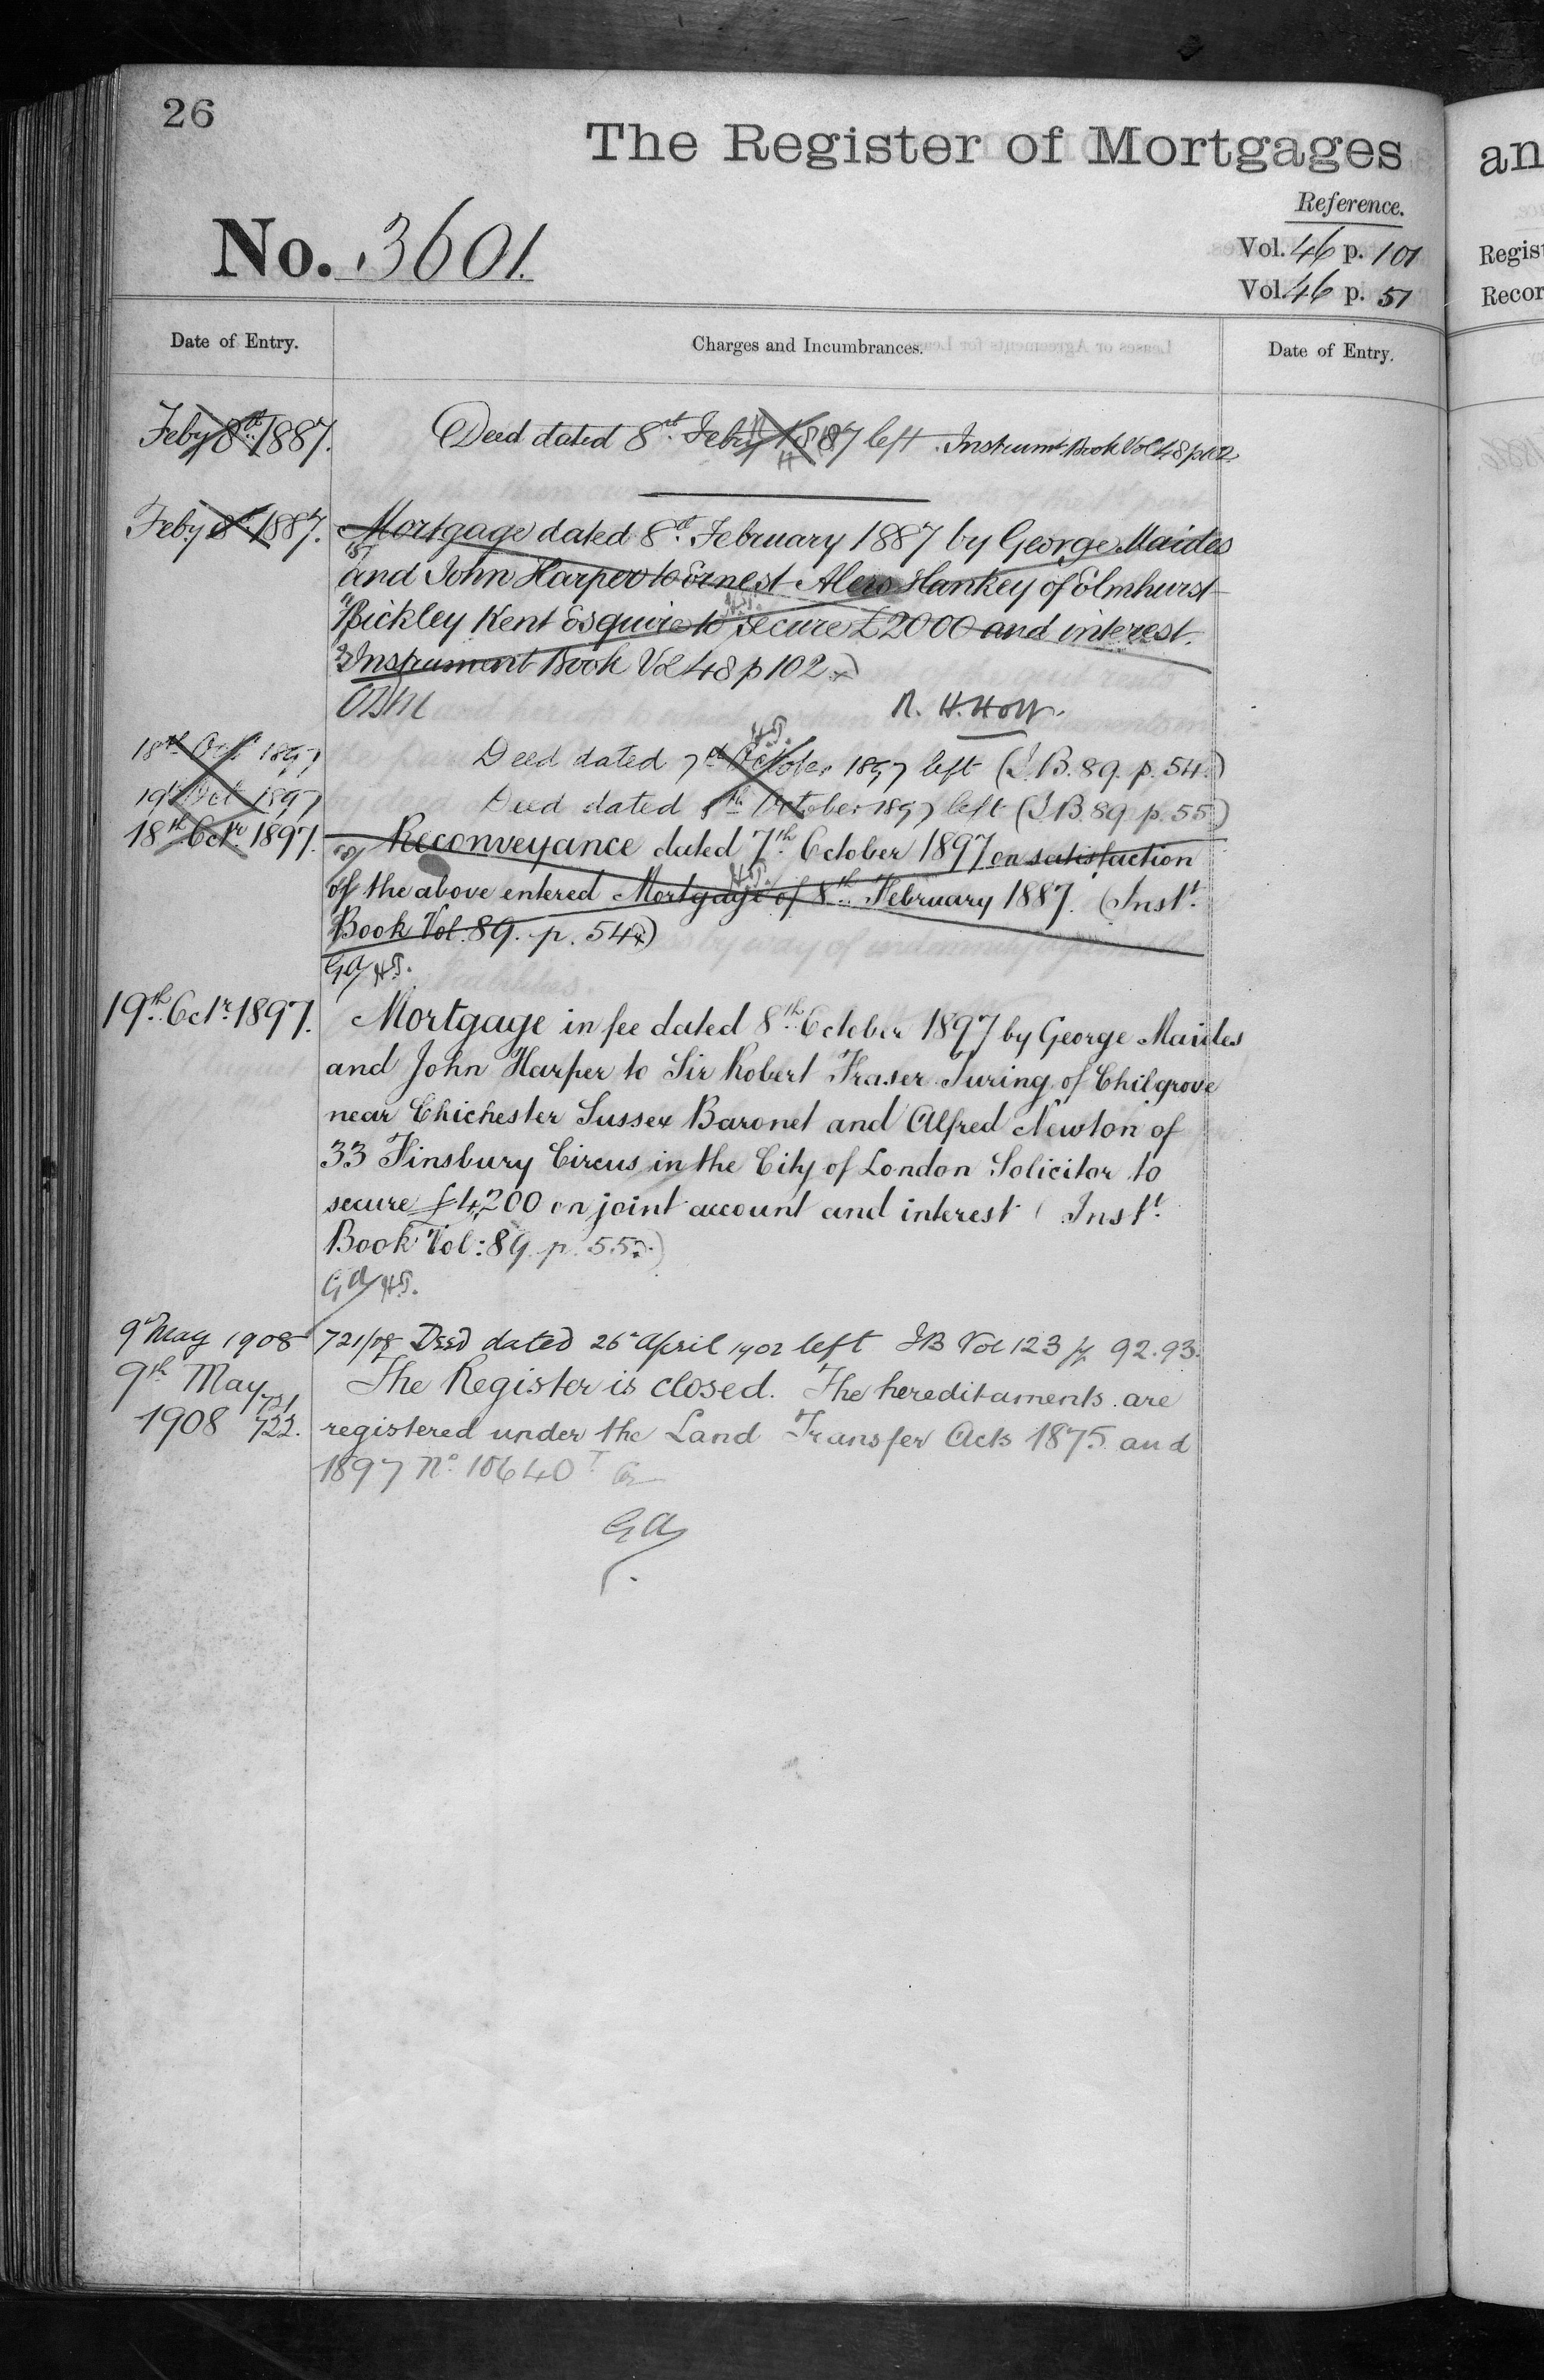 26
The Register of Mortgages
an
Reference.
No. 3601.
Vol. 46 p. 101
Regist
Vol. 46 p. 51
Recor
Date of Entry.
Charges and Incumbrances.
Date of Entry.
Feby 8th 1887.
Deed dated 8th Feby 1887 left. Instrumt Book Vol 48 p 102
Feby 8th 1887.
Mortgage dated 8th February 1887 by George Maides
and John Harper to Ernest Alers Hankey of Elmhurst
Bickley Kent Esquire to secure £2000 and interest.
Instrument Book Vol 48 p 102
R. H. Holt.
18th Oct 1897
Deed dated 7th October 1897 left (I.B. 89. p. 54.)
19th Oct 1897
Deed dated 8th October 1897 left (I.B. 89. p. 55)
18th Octr 1897.
Reconveyance dated 7th October 1897 on satisfaction
of the above entered Mortgage of 8th February 1887. (Instt
Book Vol. 89. p. 54.)
GA HS.
19th Octr 1897.
Mortgage in fee dated 8th October 1897 by George Maides
and John Harper to Sir Robert Fraser Turing of Chilgrove
near Chichester Sussex Baronet and Alfred Newton of
33 Finsbury Circus in the City of London Solicitor to
secure £4,200 on joint account and interest (Instt
Book Vol: 89. p. 55.)
GA HS.
9th May 1908
721/08 Deed dated 26th April 1902 left IB Vol 123 p 92.93.
9th May
721
The Register is closed. The hereditaments are
1908 722.
registered under the Land Transfer Acts 1875 and
1897 No. 10640
GA